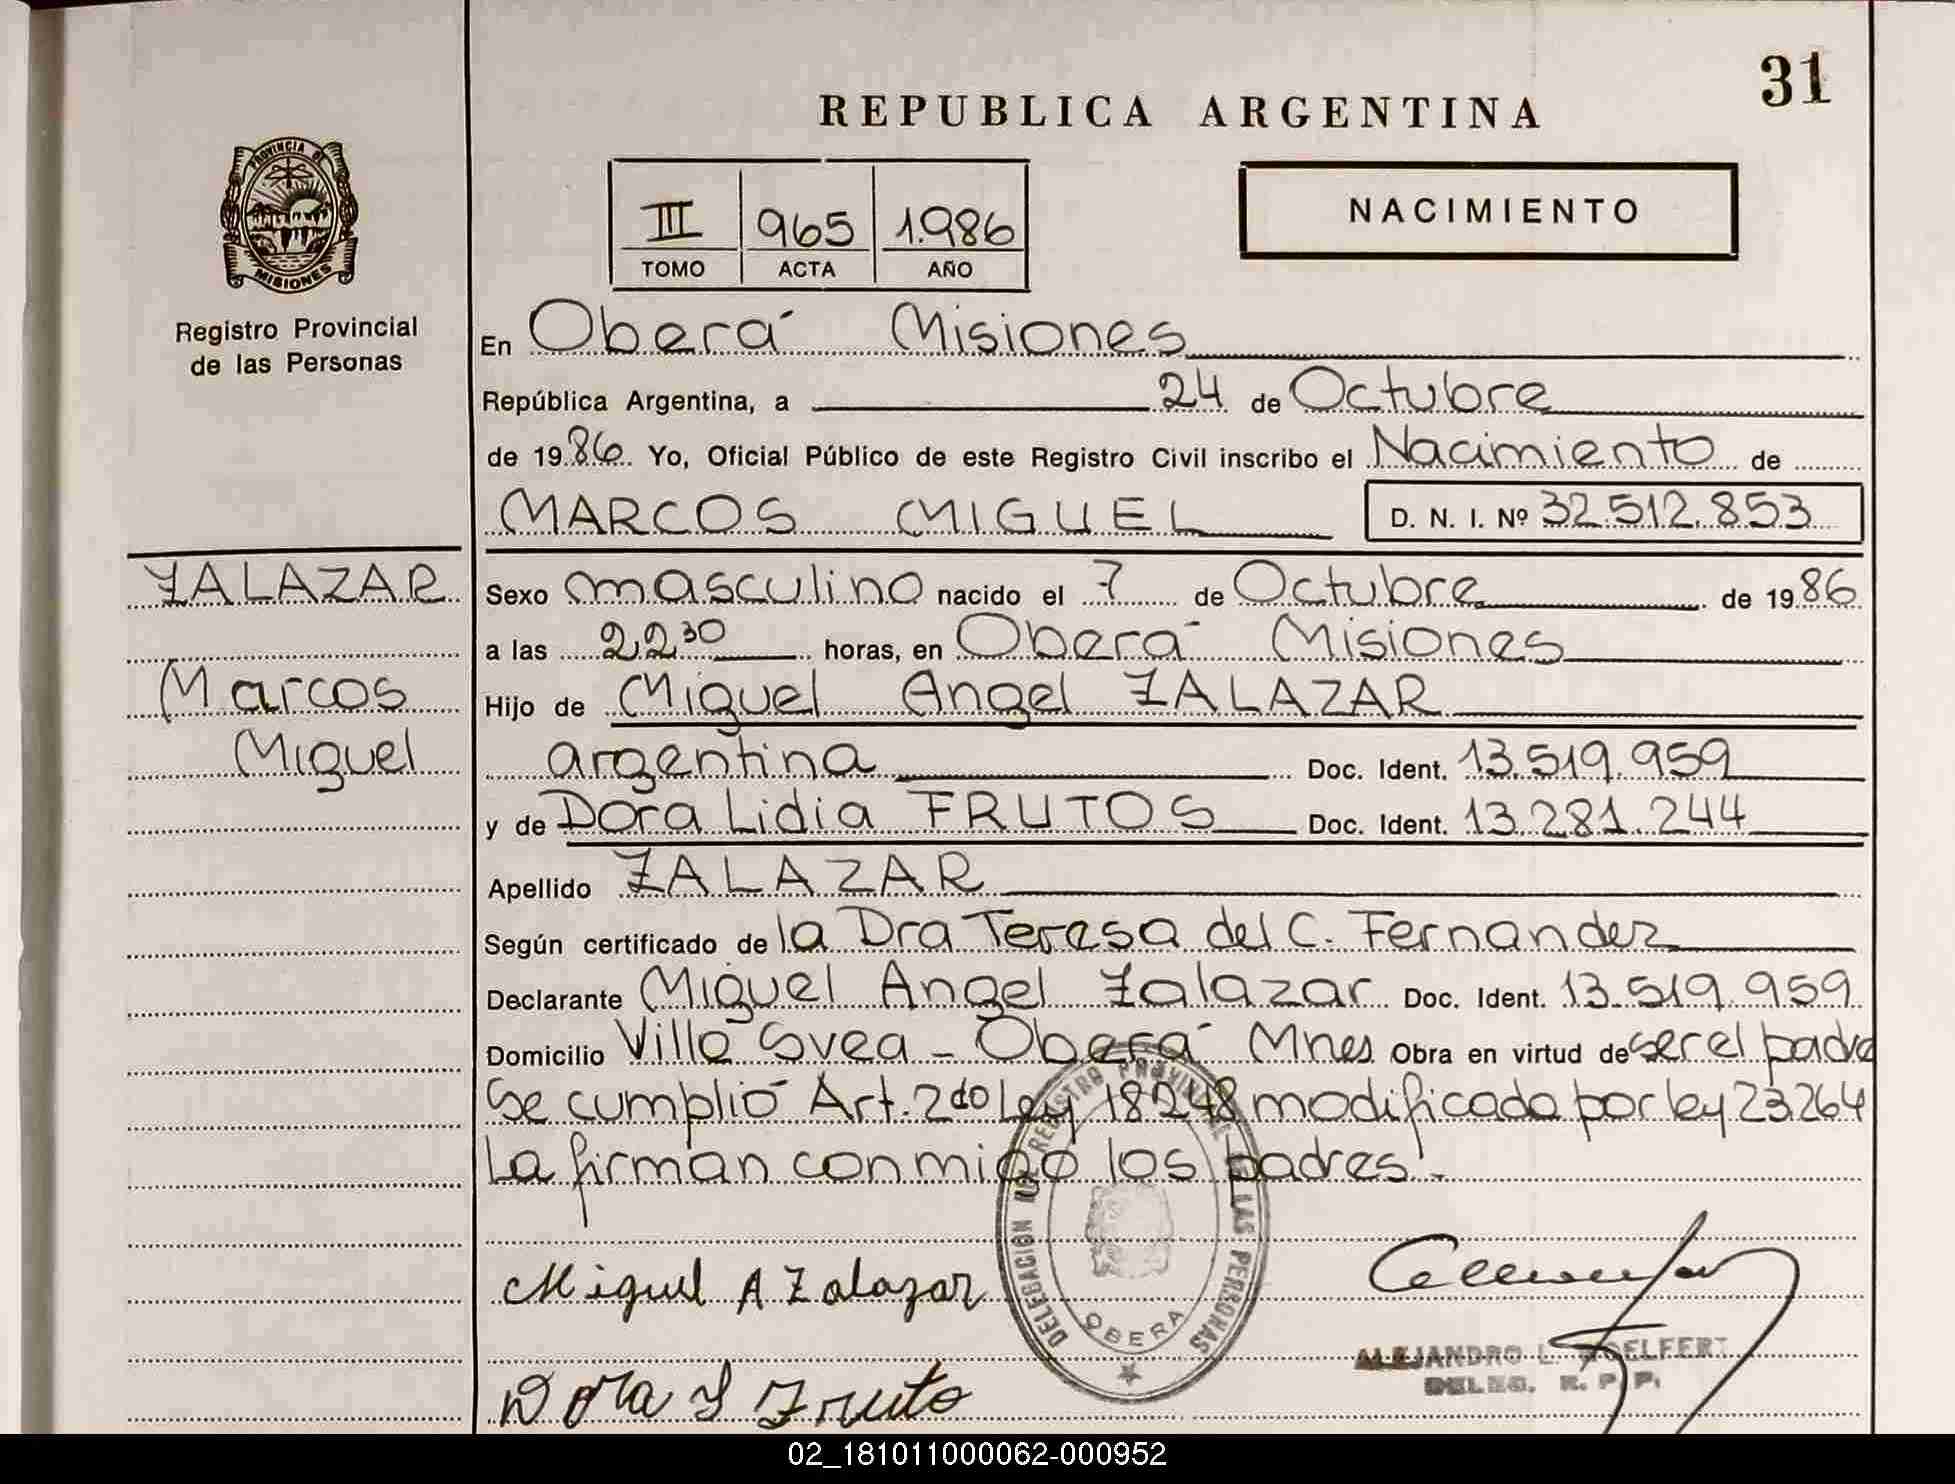 31
REPUBLICA ARGENTINA
PROVINCIA DE
MISIONES
Registro Provincial
de las Personas
III 965 1.986
TOMO ACTA AÑO
NACIMIENTO
En Oberá Misiones
República Argentina, a 24 de Octubre
de 1986. Yo, Oficial Público de este Registro Civil inscribo el Nacimiento de
MARCOS MIGUEL D. N. I. Nº 32.512.853
ZALAZAR
Marcos
Miguel
Sexo masculino nacido el 7 de Octubre de 1986
a las 22,30 horas, en Oberá Misiones
Hijo de Miguel Angel ZALAZAR
argentina Doc. Ident. 13.519.959
y de Dora Lidia FRUTOS Doc. Ident. 13.281.244
Apellido ZALAZAR
Según certificado de la Dra Teresa del C. Fernandez
Declarante Miguel Angel Zalazar Doc. Ident. 13.519.959
Domicilio Villa Svea - Oberá Mnes Obra en virtud de ser el padre
Se cumplió Art. 2do Ley 18248 modificada por ley 23.264
La firman conmigo los padres.-
DELEGACION DEL REGISTRO PROVINCIAL DE LAS PERSONAS
OBERA
Miguel A Zalazar
ALEJANDRO L.
DELEG. R. P. P.
Dora L Fruto
02_181011000062-000952